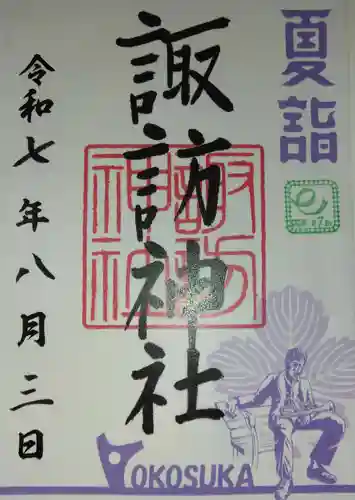 夏詣
諏訪神社
令和七年八月三日
諏訪神社
YOKOSUKA